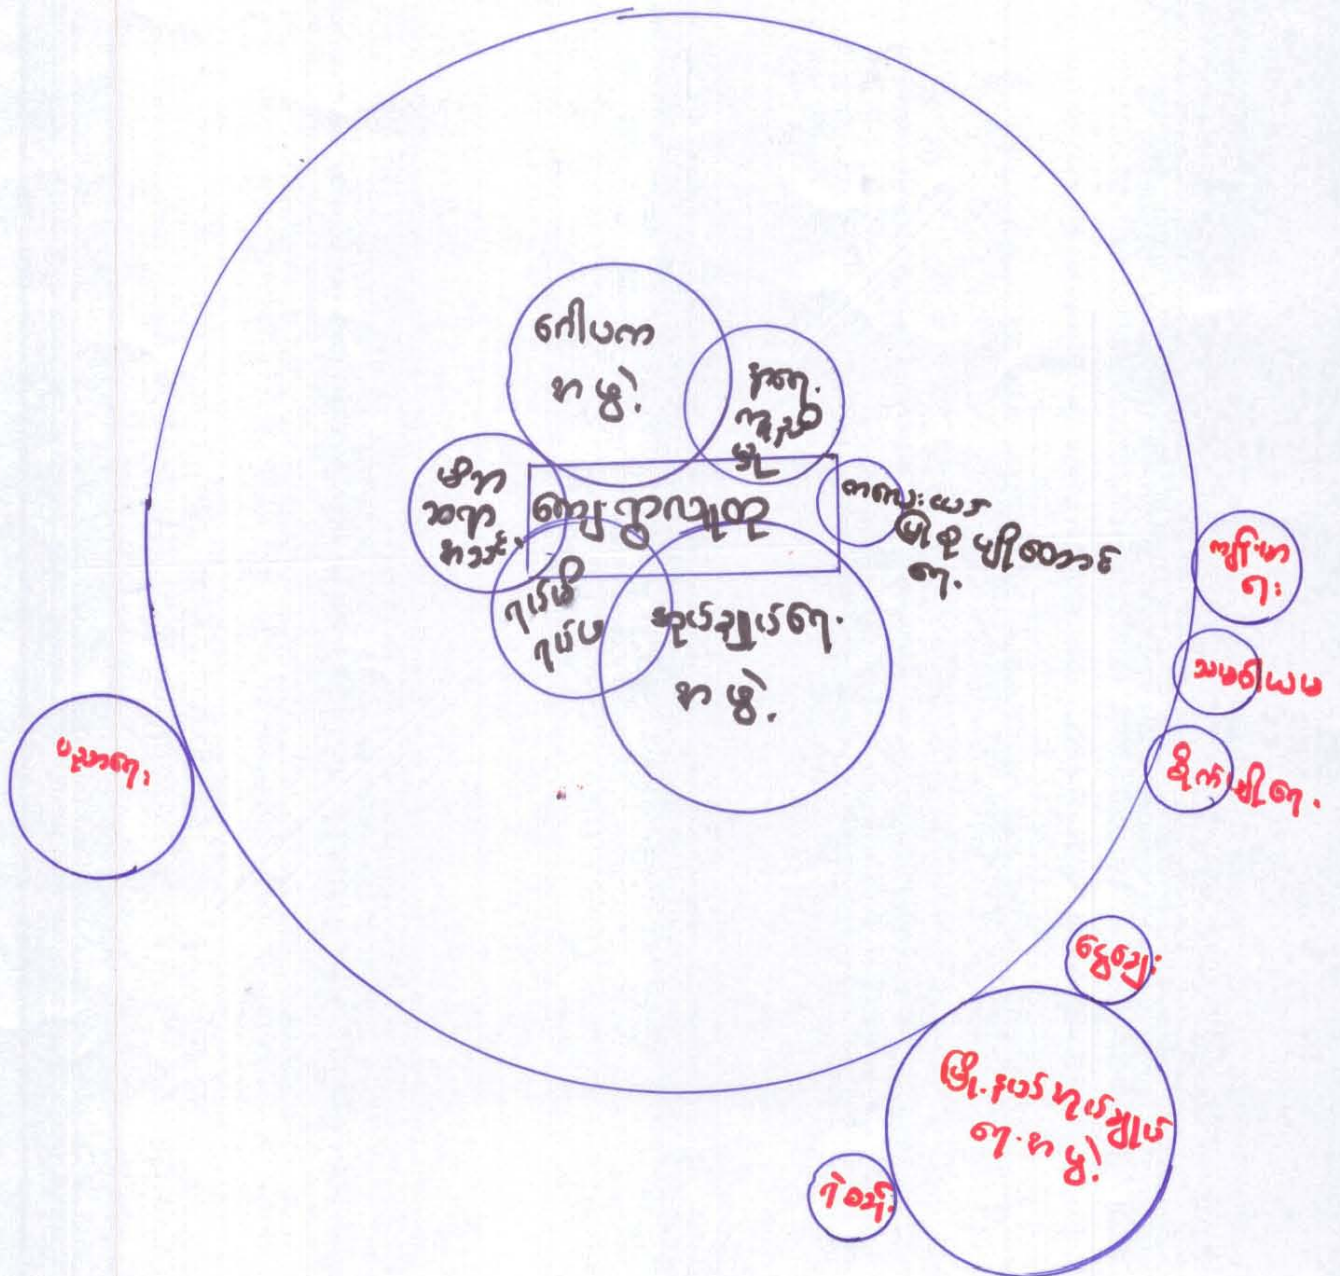 ဂေါပက
အဖွဲ့
အရေး
ကူညီ
မှု
မိဘ
ဆရာ
အသင်း
ကျေးရွာလူထု
ကလေးယဉ်
ပြုစုပျိုးထောင်
ရေး
ရပ်မိ
ရပ်ဖ
အုပ်ချုပ်ရေး
အဖွဲ့
ကျန်းမာ
ရေး
သမဝါယမ
စိုက်ပျိုးရေး
ပညာရေး
မွေး
မြို့နယ်အုပ်ချုပ်
ရေးအဖွဲ့
ရဲစခန်း